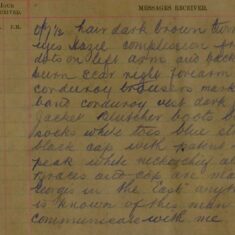 HOUR RECEIVED.
MESSAGES RECEIVED.
of 7½ hair dark brown turn
eyes Hazle complexion
dots on left arm and back
burn scar right forearm
corduroy trousers mark
band corduroy vest dark
Jacket Blutcher boots
socks white tie blue
black cap with patent
peak white neckerchief
braces and cap are
George in the East any
is known of this man
communicate with me